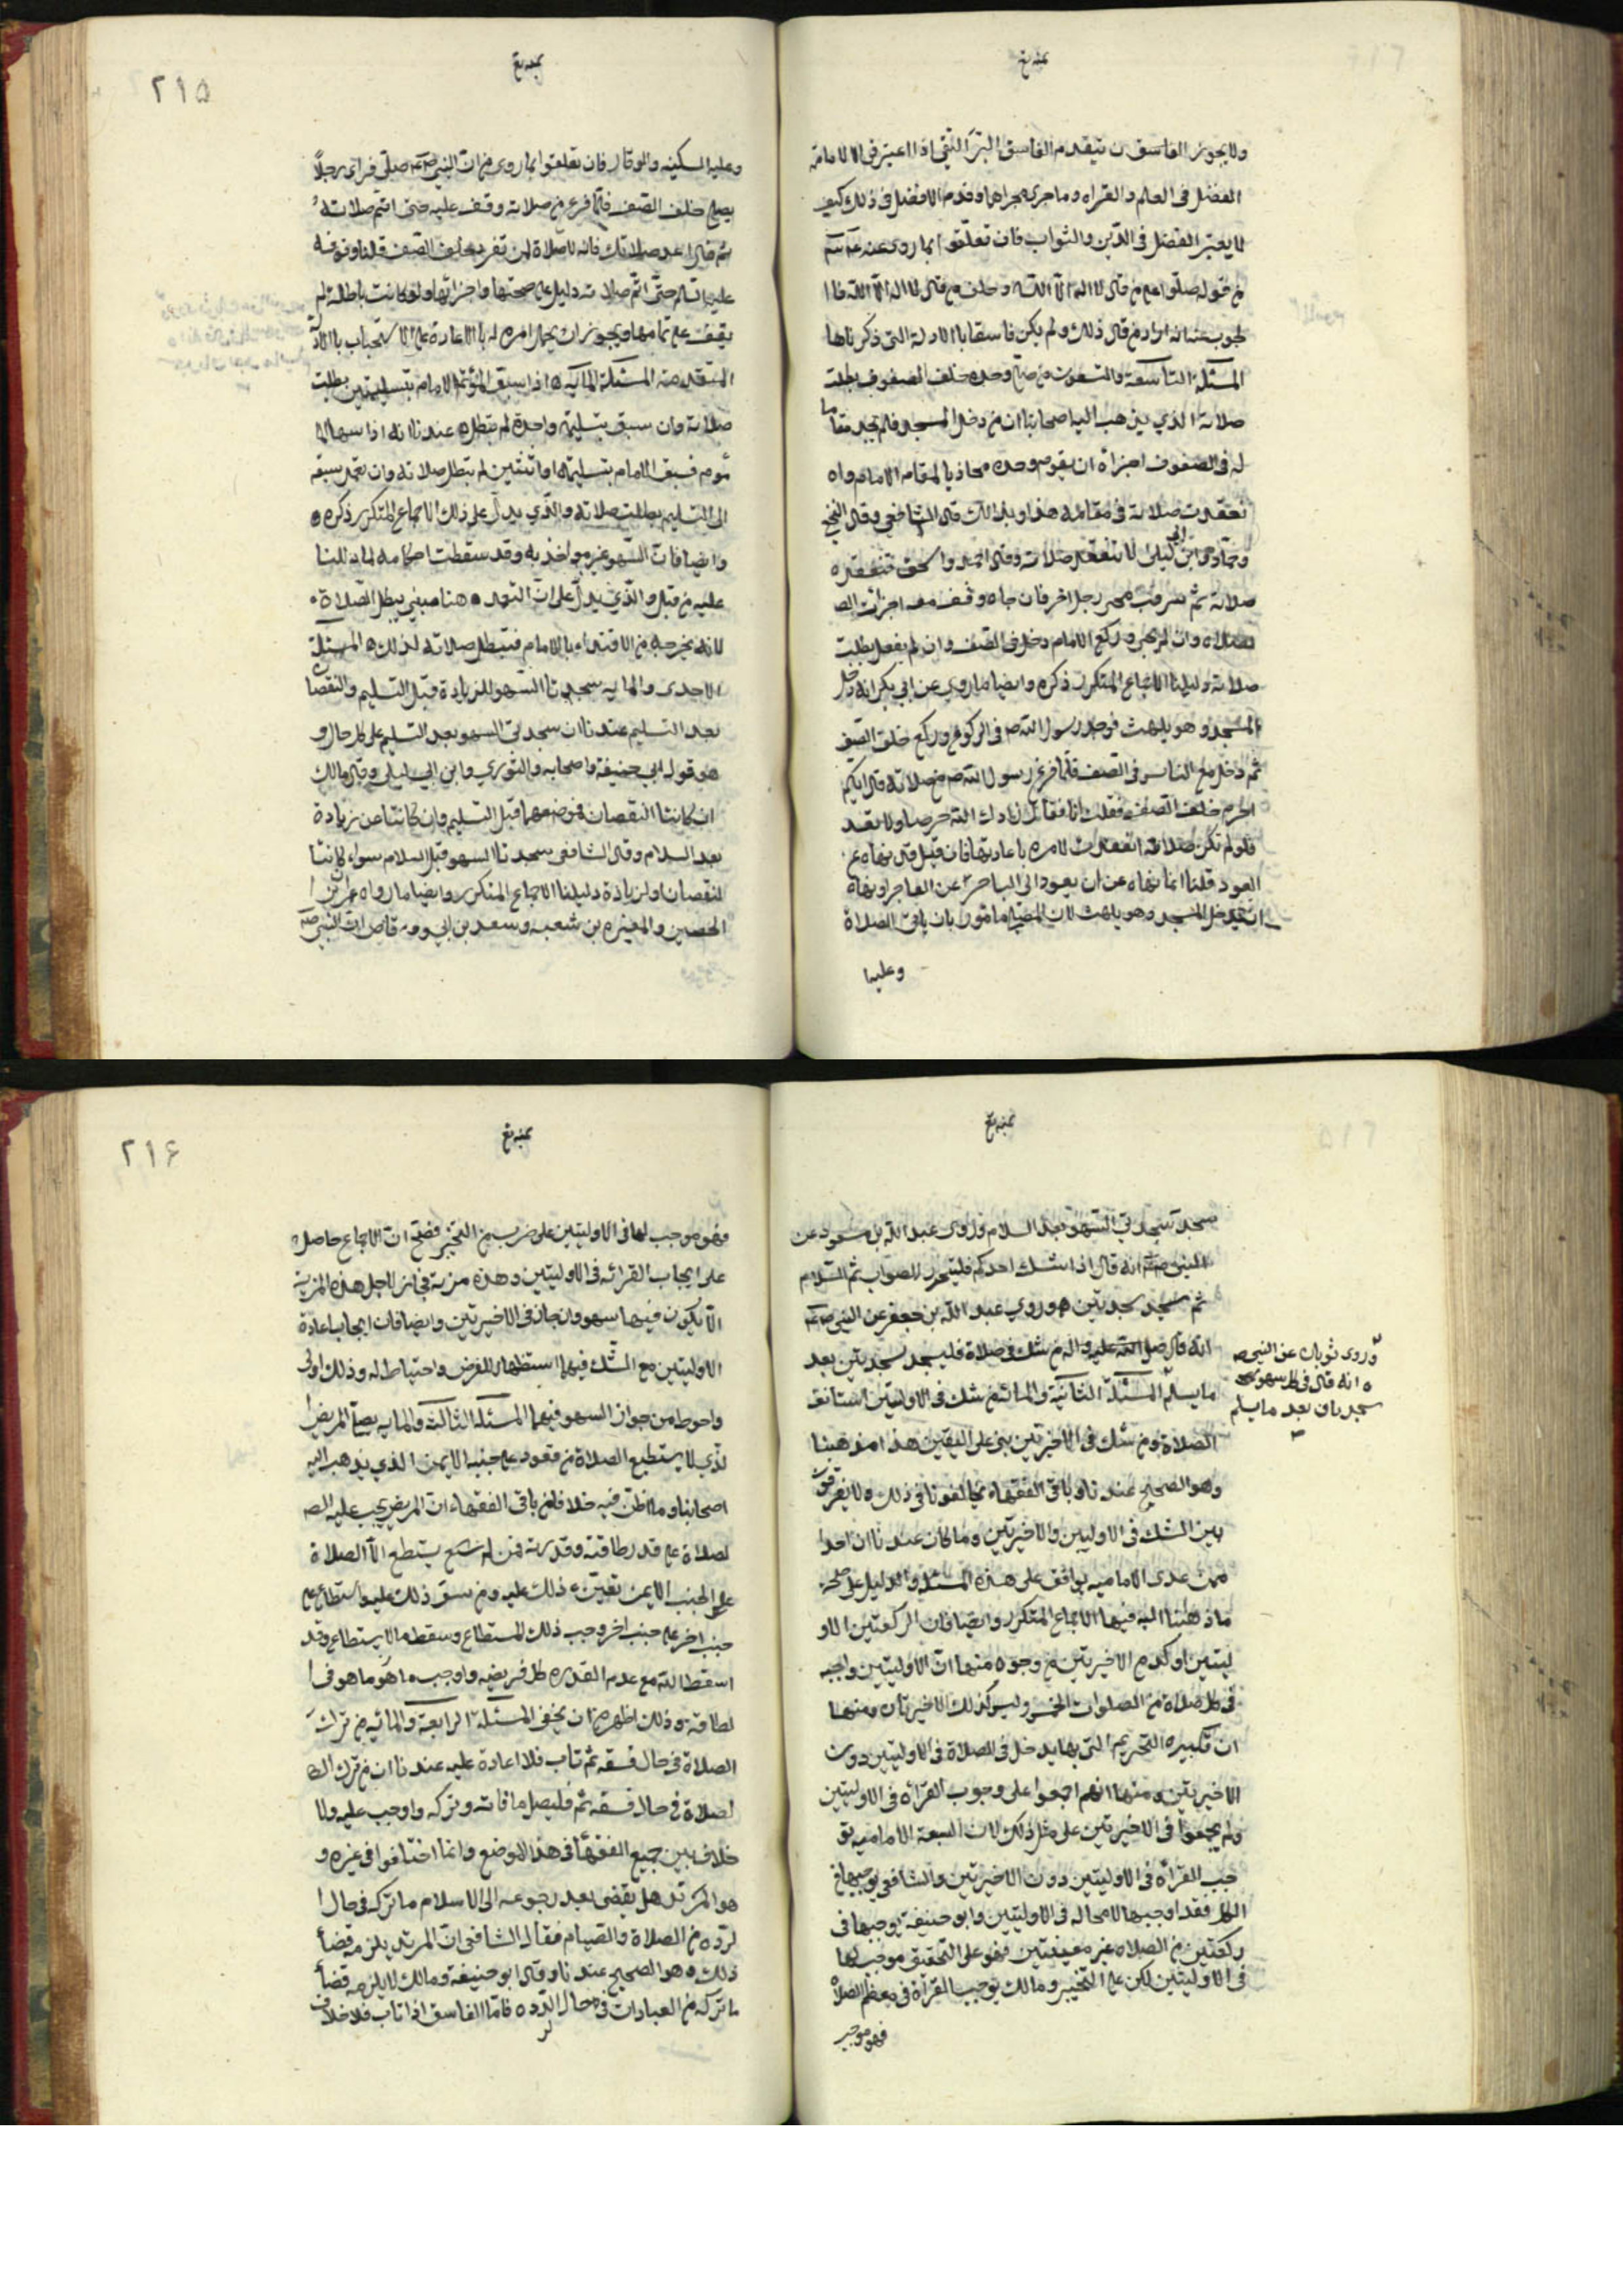 ولا يجوز الفاسق ن يتقدم الفاسق البر التقي اذا اعتبر في الامامة
الفضل في العلم والقراه وما جرى مجراها وقدم الافضل في ذلك كيف
لا يعتبر الفضل في الدين والثواب فان تعلقوا بما روى عنه
من قوله صلوا مع من قال لا اله الا الله وخلف من قال لا اله الا الله فا
لجوب عنه انه اراد من قال ذلك ولم يكن فاسقا بالادلة التي ذكرناها
المسئلة التاسعة والتسعون من صلى وحده خلف الصفوف بطلت
صلاته الذي يذهب اليه اصحابنا ان من دخل المسجد فلم يجد مقاما
له في الصفوف اجزأه ان يقوم وحده محاذيا لمقام الامام و
نعقدت صلاته في مقامه هذا وبذالك قال الشافعي وقال النخعي
وحماد وابن ابي ليلى لا تنعقد صلاته وقال احمد واسحق تنعقد
صلاته ثم ترقب مجئ رجل اخر فان جاء وقف معه اجزأت الص
لصلاه وان لم يجئ وركع الامام دخل في الصف وان لم يفعل بطلت
صلاته دليلنا الاجماع المتكرر ذكره وايضا ما روي عن ابي بكر انه دخل
المسجد وهو يلهث فوجد رسول الله ص في الركوع وركع خلف الصف
ثم دخل مع الناس في الصف فلما فرغ رسول الله ص من صلاته قال ايكم
احرم خلف الصف فقلت انا فقال زادك الله حرصا ولا تعد
فلو لم تكن صلاته انعقدت لامره باعادتها فان قيل قد نهاه عن
العود قلنا انما نهاه عن ان يعود الى التاخر عن
ان يدخل المسجد وهو يلهث لان المصلي مامور بان ياتي الصلاة
وعليها
٢١۵
وعليه السكينه والوقار فان تعلقوا بما روى من ان النبي صلى فراى رجلا
يصلي خلف الصف فلما فرغ من صلاته وقف عليه حتى اتم صلاته
ثم قال اعد صلاتك فانه لا صلاة لمن تفرد خلف الصف قلنا وقوفه
عليه السلم حتى اتم صلاته دليل على صحتها واجزائها ولو كانت باطلة لم
يقف على تمامها ويجوز ان يحمل امره له بالاعادة على الاستحباب بالادلة
المتقدمة المسئلة المائيه اذا سبق المؤتم الامام بتسليمتين بطلت
صلاته وان سبق بتسليمة واحدة لم تبطل عندنا انه اذا سها الما
موم فسبق الامام بتسليمة او اثنتين لم تبطل صلاته وان تعمد سبقه
الى التسليم بطلت صلاته والذي يدل على ذلك الاجماع المتكرر ذكره
وايضا فان السهو غير مواخذ به وقد سقطت احكامه لما دللنا
عليه من قبل والذي يدل على ان التعمد هنا يبطل الصلاة
لانه يخرجه من الاقتداء بالامام فتبطل صلاته لذلك المسئلة
الاحدى والمايه سجدتا السهو للزيادة قبل التسليم والنقصان
بعد التسليم عندنا ان سجدتي السهو بعد التسليم على كل حال و
هو قول ابي حنيفة واصحابه والثوري وابن ابي ليلى وقال مالك
ان كانتا النقصان فموضعهما قبل التسليم وان كانتا عن زيادة
بعد السلام وقال الشافعي سجدتا السهو قبل السلام سواء كانتا
لنقصان او لزيادة دليلنا الاجماع المتكرر وايضا ما رواه عمران بن ا
الحصين والمغيره بن شعبه وسعد بن ابي وقاص ان النبي
سجد سجدتي السهو بعد السلام وروى عبد الله بن مسعود عن
النبي انه قال اذا شك احدكم فليتحر للصواب ثم السلام
ثم سجد سجدتين وروى عبد الله بن جعفر عن النبي
انه قال صلى الله عليه واله من شك في صلاة فليسجد سجدتين بعد
وروى ثوبان عن النبي ص
انه قال في كل سهو
سجدتان بعد ما يسلم
ما يسلم المسئلة الثانية والمائة من شك في الاوليتين استانف
الصلاة ومن شك في الاخيرتين بنى على اليقين هذا مذهبنا
وهو الصحيح عندنا وباقي الفقهاء يخالفونا في ذلك ولا يفرقون
بين الشك في الاوليين والاخيرتين وما كان عندنا ان احدا
ممن عدى الاماميه يوافق على هذه المسئلة والدليل على صحة
ما ذهبنا اليه فيها الاجماع المتكرر وايضا فان الركعتين الاو
ليتين اوكد من الاخيرتين من وجوه منها ان الاوليتين واجبه
في كل صلاة من الصلوات الخمس وليس كذلك الاخيرتان ومنها
ان تكبيره التحريم التي بها يدخل في الصلاة في الاوليتين دون
الاخيرتين ومنها انهم اجمعوا على وجوب القرائه في الاوليتين
ولم يجمعوا في الاخيرتين على مثل ذلك لان الشيعة الاماميه تو
جب القراه في الاوليتين دون الاخيرتين والشافعي يوجبها في
الكل فقد اوجبها لا محاله في الاوليتين وابو حنيفة يوجبها في
ركعتين من الصلاه غير معينتين فهو على التحقيق موجب لها
في الاوليتين لكن على التخيير ومالك يوجب القرآة في معظم الصلاه
فهو موجب
٢١۶
وهو موجب لها في الاوليتين على ضرب من التخير فصح ان الاجماع حاصل
على ايجاب القرائه في الاوليتين وهذه مزية فجاز لاجل هذه المزية
الا يكون فيها سهو وان جاز في الاخيرتين وايضا فان ايجاب اعادة
الاوليتين مع الشك فيهما استظهار للفرض واحتياط له وذلك اولى
واحوط من جواز السهو فيهما المسئلة الثالثة والمايه يصلي المريض ا
لذي لا يستطيع الصلاة من قعود على جنبه الايمن الذي يذهب اليه
اصحابنا وما اظن فيه خلافا من باقي الفقهاء ان المريض يجب عليه الص
لصلاة على قدر طاقته وقدرته فمن لم يستطع الا الصلاة
على الجنب الايمن تعين ذلك عليه ومن ذلك عليه واستطاع على
جنب اخر على جنب اخر وجب ذلك المستطاع وسقط ما لا يستطاع وقد
اسقط الله مع عدم القدره كل فريضه واوجب ما هو في ا
لطاقة وذلك اظهر من ان يخفى المسئلة الرابعة والمائيه من ترك
الصلاة في حال فسقه ثم تاب فلا اعادة عليه عندنا ان من ترك الص
لصلاة في حال فسقه ثم فليصل ما فاته وتركه واوجب عليه ولا
خلاف بين جميع الفقهاء في هذا الموضع وانما اختلفوا في غيره و
هو المرتد هل يقضي بعد رجوعه الى الاسلام ما تركه في حال ا
لردة من الصلاة والصيام فقال الشافعي ان المرتد يلزمه قضأ
ذلك وهو الصحيح عندنا وقال ابو حنيفة ومالك لا يلزمه قضأ
ما تركه من العبادات في حال الرده فاما الفاسق اذا تاب فلا خلاف